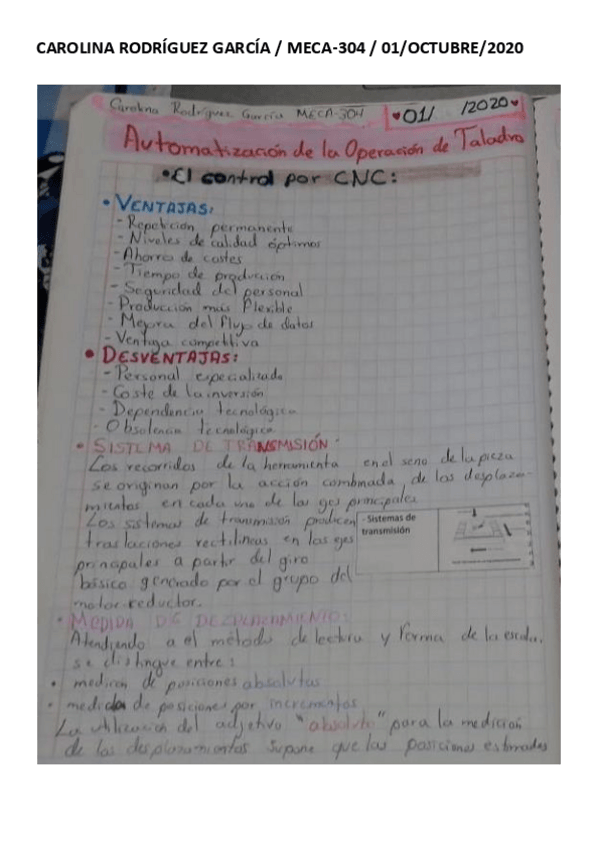 CAROLINA RODRÍGUEZ GARCÍA / MECA-304 / 01/OCTUBRE/2020
Carolina Rodríguez García MECA-304 ♥01/ /2020♥
Automatización de la Operación de Taladro
•El control por CNC:
• VENTAJAS:
- Repetición permanente
- Niveles de calidad óptimos
- Ahorro de costes
- Tiempo de producción
- Seguridad del personal
- Producción más flexible
- Mejora del flujo de datos
- Ventaja competitiva
• DESVENTAJAS:
- Personal especializado
- Coste de la inversión
- Dependencia tecnológica
- Obsolencia tecnológica
• SISTEMA DE TRANSMISIÓN:
Los recorridos de la herramienta en el seno de la pieza
se originan por la acción combinada de los desplaza-
mientos en cada uno de los ejes principales
Los sistemas de transmisión producen
traslaciones rectilíneas en los ejes
principales a partir del giro
básico generado por el grupo del
motor-reductor.
- Sistemas de
transmisión
• MEDIDA DE DEZPLAZAMIENTO:
Atendiendo a el método de lectura y forma de la escala,
se distingue entre:
• medición de posiciones absolutas
• medición de posiciones por incrementos
La utilización del adjetivo "absoluto" para la medición
de los desplazamientos supone que las posiciones estimadas